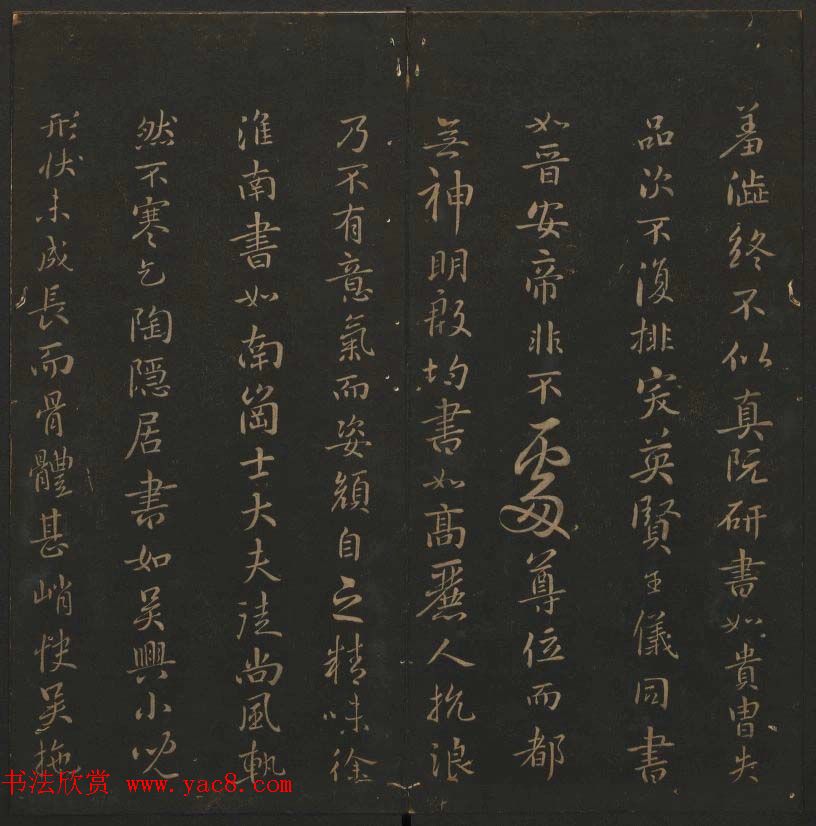 羞澁終不似真阮研書如貴胄失
品次不復排突英賢王儀同書
如晉安帝非不處尊位而都
無神明殷均書如高麗人抗浪
乃不有意氣而姿顏自之精味徐
淮南書如南崗士大夫徒尚風軌
然不寒乞陶隱居書如吳興小兒
形狀未成長而骨體甚峭快吳施
书法欣赏 www.yac8.com